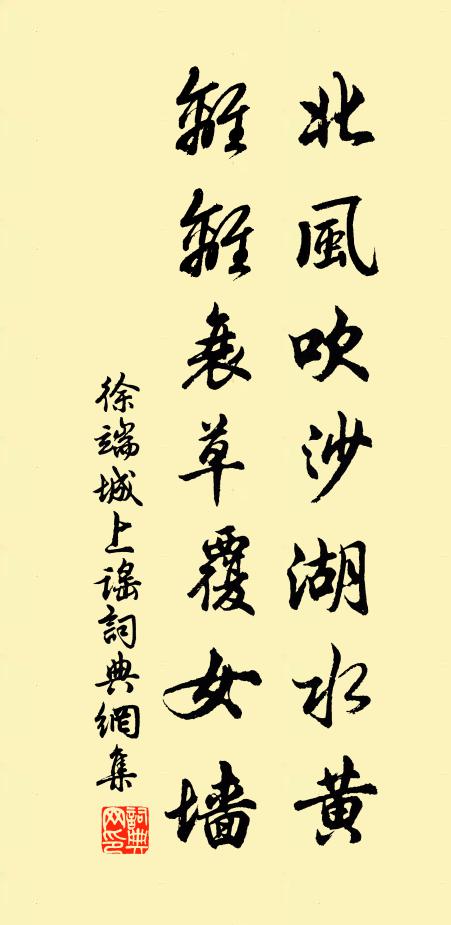 北風吹沙湖水黄
離離衰草覆女墻
徐端城上謡詞典網集
詞典网印